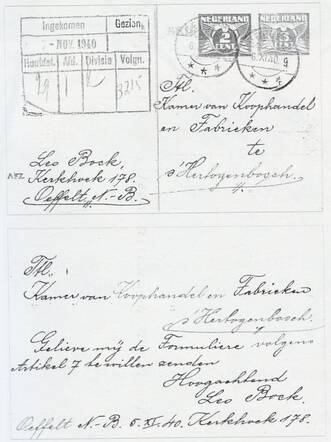 Ingekomen Gezien
- NOV. 1940
Hoofdel. Afd. Divisie Volgn.
1 R 3215
NEDERLAND NEDERLAND
2 CENT
CENT
6.XI.40. 9
Tit.
Kamer van Koophandel
en Fabrieken
te
s'Hertogenbosch.
Leo Bock,
AFZ. Kerkhoek 178.
Oeffelt N.-B.
Tit.
Kamer van Koophandel en Fabrieken
s'Hertogenbosch.
Gelieve mij de Formuliere volgens
Artikel 7 te willen zenden
Hoogachtend
Leo Bock.
Oeffelt N.-B 5.XI.40. Kerkhoek 178.